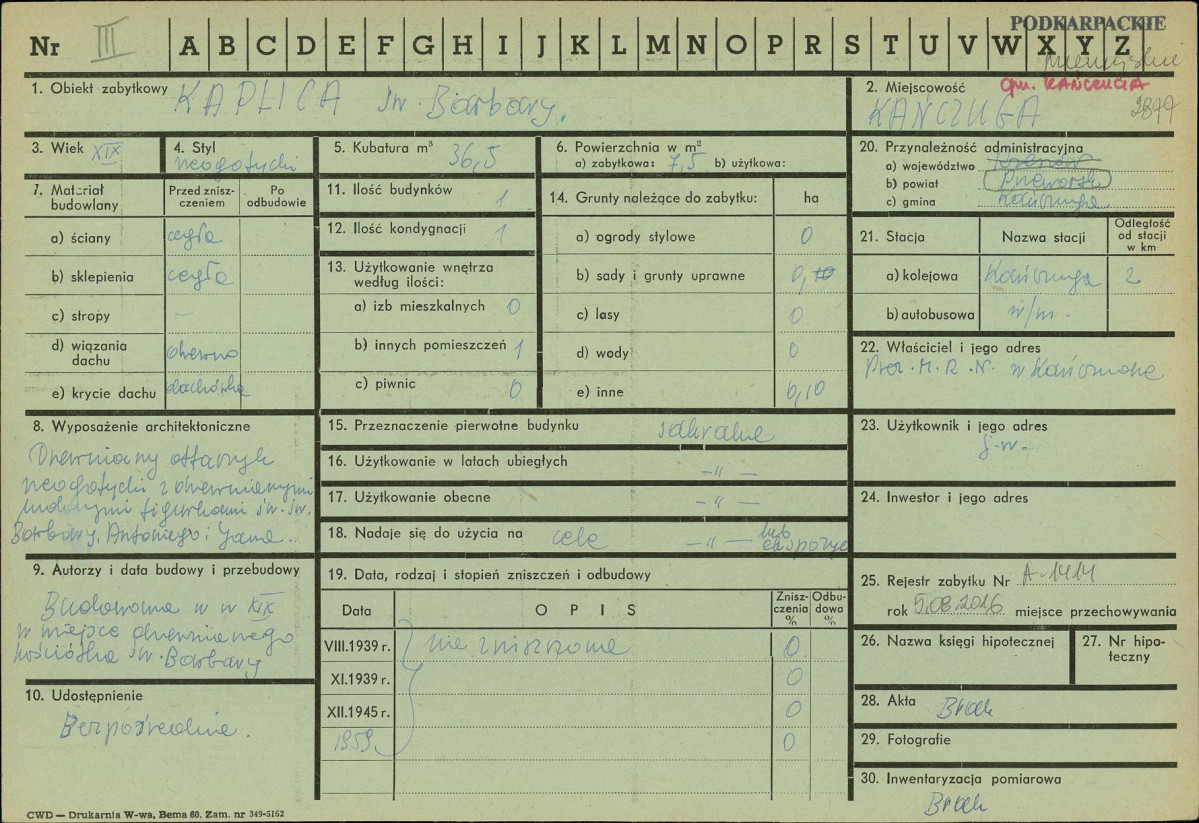 PODKARPACKIE
Nr III A B C D E F G H I J K L M N O P R S T U V W X Y Z
przemyskie
1. Obiekt zabytkowy KAPLICA św. Barbary.
2. Miejscowość gm. KAŃCZUGA
KAŃCZUGA 2877
3. Wiek XIX
4. Styl neogotycki
5. Kubatura m³ 36,5
6. Powierzchnia w m²
a) zabytkowa: 7,5 b) użytkowa:
20. Przynależność administracyjna
a) województwo Rzeszów
b) powiat Przeworsk
c) gmina Kańczuga
7. Materiał budowlany
Przed zniszczeniem
Po odbudowie
a) ściany cegła
b) sklepienia cegła
c) stropy —
d) wiązania dachu drewno
e) krycie dachu dachówka
11. Ilość budynków 1
12. Ilość kondygnacji 1
13. Użytkowanie wnętrza według ilości:
a) izb mieszkalnych 0
b) innych pomieszczeń 1
c) piwnic 0
14. Grunty należące do zabytku: ha
a) ogrody stylowe 0
b) sady i grunty uprawne 0,10
c) lasy 0
d) wody 0
e) inne 0,10
21. Stacja
Nazwa stacji
Odległość od stacji w km
a) kolejowa Kańczuga 2
b) autobusowa w/m -
22. Właściciel i jego adres
Prez. M. R. N. w Kańczudze
8. Wyposażenie architektoniczne
Drewniany ołtarzyk
neogotycki z drewnianymi
ludowymi figurkami św. św.
Barbary, Antoniego i Jana.
15. Przeznaczenie pierwotne budynku sakralne
16. Użytkowanie w latach ubiegłych -„-
17. Użytkowanie obecne -„-
18. Nadaje się do użycia na cele -„- lub ekspozyc
23. Użytkownik i jego adres
j.w.
24. Inwestor i jego adres
9. Autorzy i data budowy i przebudowy
Budowana w w XIX
w miejsce drewnianego
kościółka św. Barbary
10. Udostępnienie
Bezpośrednie.
19. Data, rodzaj i stopień zniszczeń i odbudowy
Data OPIS Zniszczenia % Odbudowa %
VIII.1939 r. nie zniszczona 0
XI.1939 r. 0
XII.1945 r. 0
1959 0
25. Rejestr zabytku Nr A-1414
rok 5.08.2016 miejsce przechowywania
26. Nazwa księgi hipotecznej
27. Nr hipoteczny
28. Akta Brak
29. Fotografie
30. Inwentaryzacja pomiarowa
Brak
CWD — Drukarnia W-wa, Bema 60. Zam. nr 349-5162